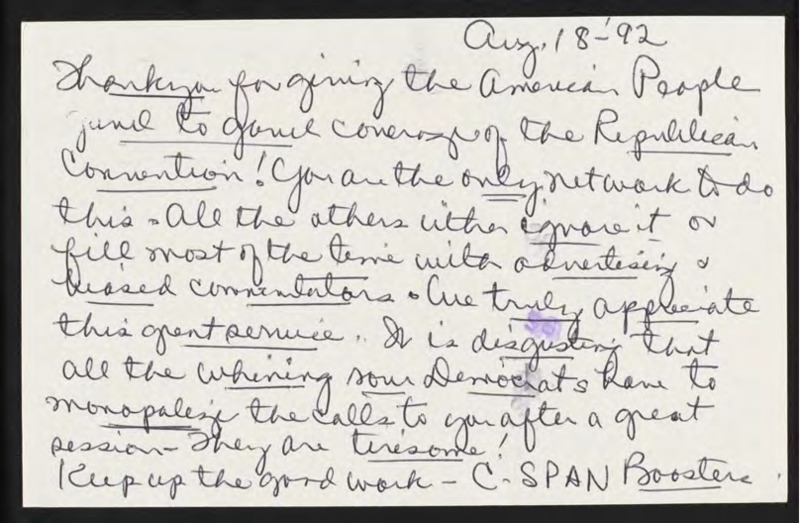 Aug. 18-'92
Thank you for giving the American People
gavel to gavel coverage of the Republican
Convention! You are the only network to do
this. All the others either ignore it or
fill most of the time with advertising &
biased commentators. We truly appreciate
this great service. It is disgusting that
all the whining sour Democrats have to
monopolize the calls to you after a great
session - They are tiresome!
Keep up the good work - C-SPAN Boosters.